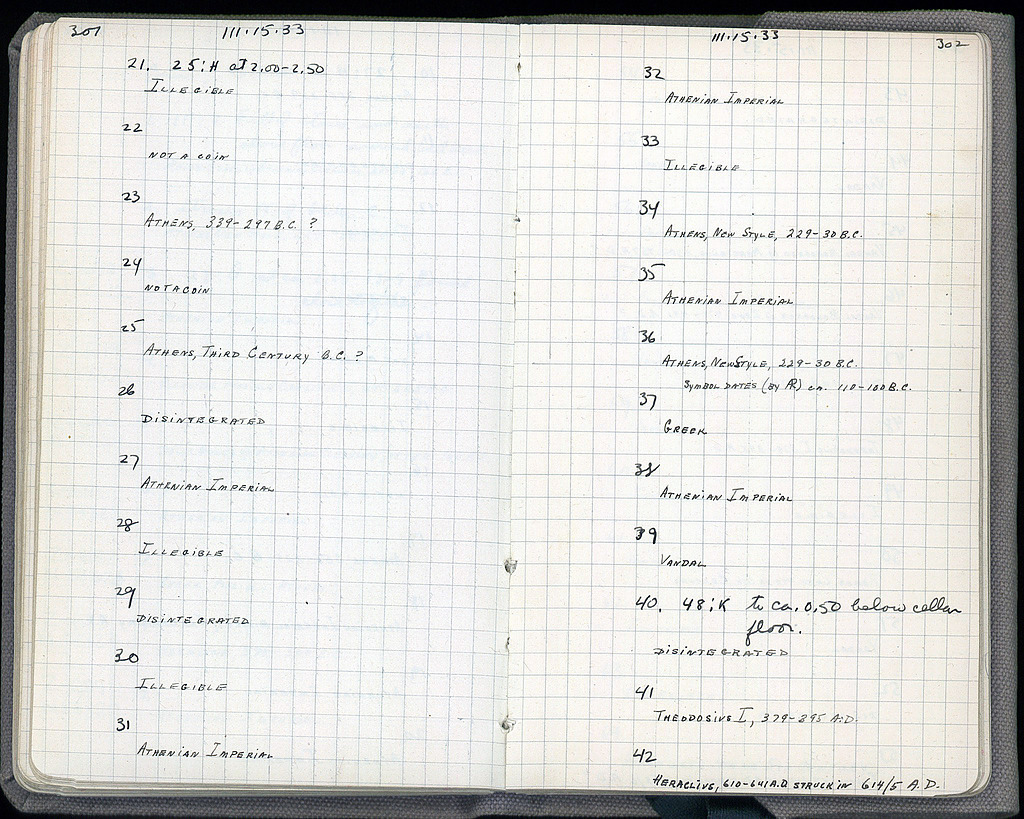 301
111.15.33
21. 25:H at 2.00-2.50
ILLEGIBLE
22
NOT A COIN
23
ATHENS, 339-297 B.C. ?
24
NOT A COIN
25
ATHENS, THIRD CENTURY B.C. ?
26
DISINTEGRATED
27
ATHENIAN IMPERIAL
28
ILLEGIBLE
29
DISINTEGRATED
30
ILLEGIBLE
31
ATHENIAN IMPERIAL
111.15.33
302
32
ATHENIAN IMPERIAL
33
ILLEGIBLE
34
ATHENS, NEW STYLE, 229-30 B.C.
35
ATHENIAN IMPERIAL
36
ATHENS, NEW STYLE, 229-30 B.C.
SYMBOL DATES (BY AR) ca. 110-100 B.C.
37
GREEK
38
ATHENIAN IMPERIAL
39
VANDAL
40. 48:K to ca. 0.50 below cellar
floor.
DISINTEGRATED
41
THEODOSIUS I, 379-395 A.D.
42
HERACLIUS, 610-641 A.D. STRUCK IN 614/5 A.D.